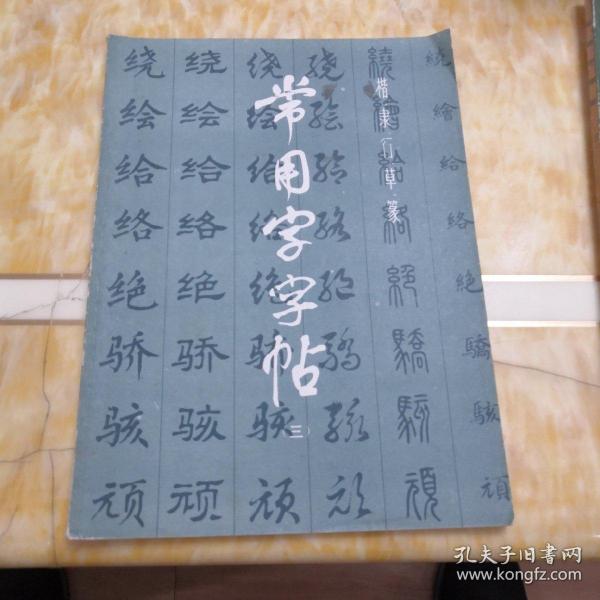 常用字字帖
（三）
楷隶行草篆
绕 绕 绕 绕 繞 繞
绘 绘 绘 绘 繪 繪
给 给 给 给 給 給
络 络 络 络 絡 絡
绝 绝 绝 绝 絕 絶
骄 骄 骄 骄 驕 驕
骇 骇 骇 骇 駭 駭
顽 顽 顽 顽 頑 頑
孔夫子旧书网
www.kongfz.com